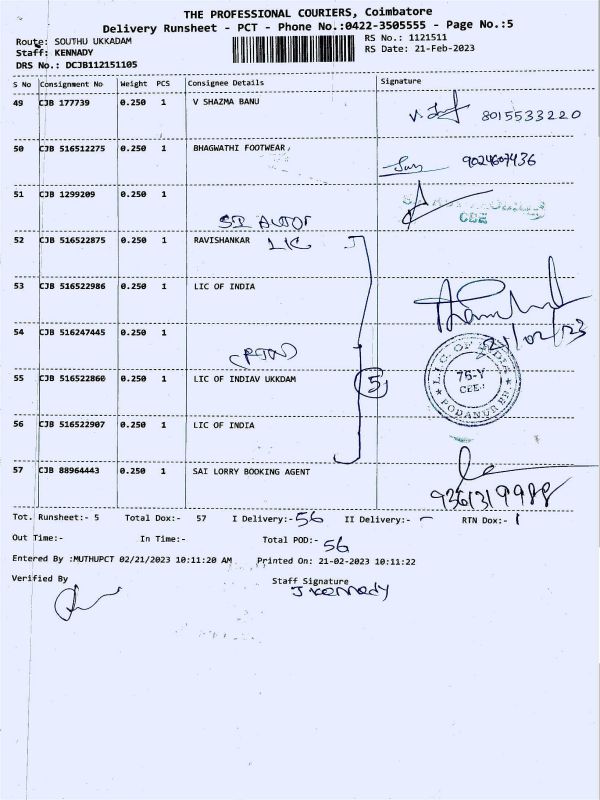 THE PROFESSIONAL COURIERS, Coimbatore
Delivery Runsheet - PCT - Phone No.:0422-3505555 - Page No.:5
Route: SOUTHU UKKADAM
RS No.: 1121511
Staff: KENNADY
RS Date: 21-Feb-2023
DRS No.: DCJB112151105
S No Consignment No Weight PCS Consignee Details Signature
49 CJB 177739 0.250 1 V SHAZMA BANU
8015533220
50 CJB 516512275 0.250 1 BHAGWATHI FOOTWEAR,
9024607436
51 CJB 1299209 0.250 1
CBE
SRI AUTOT
52 CJB 516522875 0.250 1 RAVISHANKAR LIC
53 CJB 516522986 0.250 1 LIC OF INDIA
21/02/23
54 CJB 516247445 0.250 1
(RTN)
55 CJB 516522860 0.250 1 LIC OF INDIAV UKKDAM 5
L.I.C. OF INDIA
75-Y
CBE-1
PODANUR BR
56 CJB 516522907 0.250 1 LIC OF INDIA
57 CJB 88964443 0.250 1 SAI LORRY BOOKING AGENT
9361319988
Tot. Runsheet:- 5 Total Dox:- 57 I Delivery:- 56 II Delivery:- - RTN Dox:- 1
Out Time:- In Time:- Total POD:- 56
Entered By :MUTHUPCT 02/21/2023 10:11:20 AM Printed On: 21-02-2023 10:11:22
Verified By Staff Signature
J Kennady